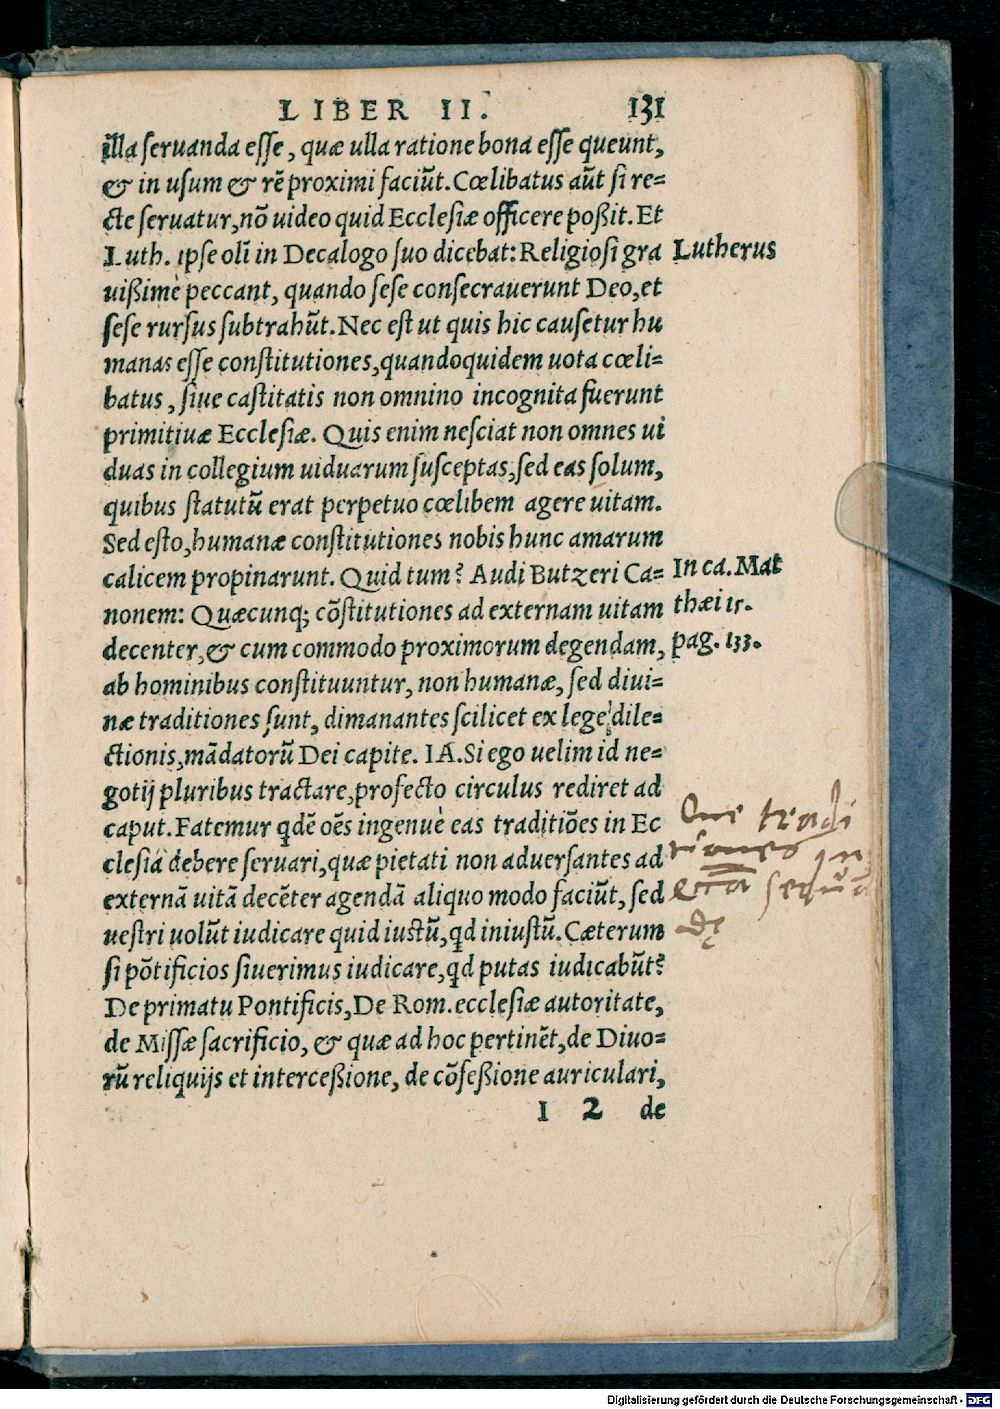 LIBER II. 131
illa seruanda esse, quæ ulla ratione bona esse queunt,
& in usum & rē proximi faciūt. Cœlibatus aūt si re=
cte seruatur, nō uideo quid Ecclesiæ officere poßit. Et
Luth. ipse olī in Decalogo suo dicebat: Religiosi gra
uißimè peccant, quando sese consecrauerunt Deo, et
sese rursus subtrahūt. Nec est ut quis hic causetur hu
manas esse constitutiones, quandoquidem uota cœli=
batus, siue castitatis non omnino incognita fuerunt
primitiuæ Ecclesiæ. Quis enim nesciat non omnes ui
duas in collegium uiduarum susceptas, sed eas solum,
quibus statutū erat perpetuo cœlibem agere uitam.
Sed esto, humanæ constitutiones nobis hunc amarum
calicem propinarunt. Quid tum? Audi Butzeri Ca=
nonem: Quæcunq; cōstitutiones ad externam uitam
decenter, & cum commodo proximorum degendam,
ab hominibus constituuntur, non humanæ, sed diui=
næ traditiones sunt, dimanantes scilicet ex lege dile=
ctionis, mādatorū Dei capite. IA. Si ego uelim id ne=
gotij pluribus tractare, profecto circulus rediret ad
caput. Fatemur qdē oēs ingenuè eas traditiōes in Ec
clesia debere seruari, quæ pietati non aduersantes ad
externā uitā decēter agendā aliquo modo faciūt, sed
uestri uolūt iudicare quid iustū, qd iniustū. Cæterum
si pōtificios siuerimus iudicare, qd putas iudicabūt?
De primatu Pontificis, De Rom. ecclesiæ autoritate,
de Missæ sacrificio, & quæ ad hoc pertinēt, de Diuo=
rū reliquijs et interceßione, de cōfeßione auriculari,
I 2 de
Lutherus
In ca. Mat
thæi 15.
pag. 133.
Que tradi
tiones in
eccā sequū
de
Digitalisierung gefördert durch die Deutsche Forschungsgemeinschaft - DFG